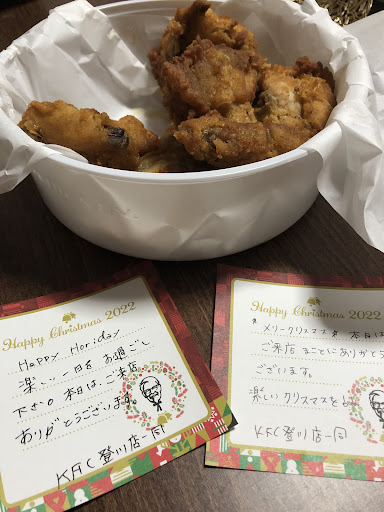 Happy Christmas 2022
Happy Horiday
楽しい一日をお過ごし
下さい。本日は、ご来店
ありがとうございます。
KFC登川店一同
Happy Christmas 2022
*メリークリスマス* 本日は
ご来店まことにありがとう
ございます。
楽しいクリスマスを
KFC登川店一同